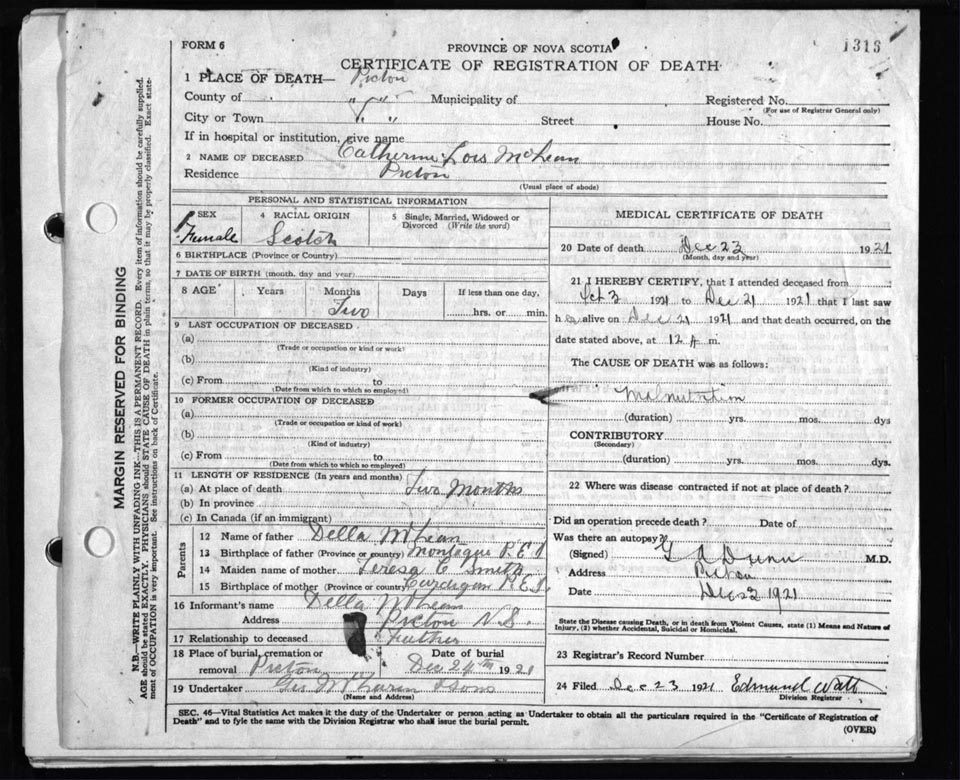 FORM 6
1316
PROVINCE OF NOVA SCOTIA
CERTIFICATE OF REGISTRATION OF DEATH
1 PLACE OF DEATH— Picton
County of " " Municipality of Registered No.
(For use of Registrar General only)
City or Town " " Street House No.
If in hospital or institution, give name
2 NAME OF DECEASED Catherine Lois McLean
Residence Picton
(Usual place of abode)
PERSONAL AND STATISTICAL INFORMATION
SEX Female
4 RACIAL ORIGIN Scotch
5 Single, Married, Widowed or Divorced (Write the word)
6 BIRTHPLACE (Province or Country)
7 DATE OF BIRTH (month, day and year)
8 AGE Years Months Two Days If less than one day, hrs. or min.
9 LAST OCCUPATION OF DECEASED
(a)
(Trade or occupation or kind or work)
(b)
(Kind of industry)
(c) From to
(Date from which to which so employed)
10 FORMER OCCUPATION OF DECEASED
(a)
(Trade or occupation or kind of work)
(b)
(Kind of industry)
(c) From to
(Date from which to which so employed)
11 LENGTH OF RESIDENCE (In years and months)
(a) At place of death Two Months
(b) In province
(c) In Canada (if an immigrant)
Parents
12 Name of father Della McLean
13 Birthplace of father (Province or country) Montague P.E.I
14 Maiden name of mother Teresa C. Smith
15 Birthplace of mother (Province or country) Cardigan P.E.I.
16 Informant's name Della McLean
Address Picton N.S.
17 Relationship to deceased Father
18 Place of burial, cremation or removal Picton Date of burial Dec 24th 1921
19 Undertaker Geo McLaren & Sons
(Name and Address)
MEDICAL CERTIFICATE OF DEATH
20 Date of death Dec 23 1921
(Month, day and year)
21 I HEREBY CERTIFY, that I attended deceased from
Oct 3 1921 to Dec 21 1921 that I last saw
h alive on Dec 21 1921 and that death occurred, on the
date stated above, at 12 A m.
The CAUSE OF DEATH was as follows:
Malnutrition
(duration) yrs. mos. dys
CONTRIBUTORY
(Secondary)
(duration) yrs. mos. dys.
22 Where was disease contracted if not at place of death?
Did an operation precede death? Date of
Was there an autopsy?
(Signed) G A Dunn M.D.
Address Picton
Date 1921
State the Disease causing Death, or in death from Violent Causes, state (1) Means and Nature of
Injury, (2) whether Accidental, Suicidal or Homicidal.
23 Registrar's Record Number
24 Filed Dec 23 1921 Edmund Watt
Division Registrar
SEC. 46—Vital Statistics Act makes it the duty of the Undertaker or person acting as Undertaker to obtain all the particulars required in the "Certificate of Registration of
Death" and to fyle the same with the Division Registrar who shall issue the burial permit.
(OVER)
MARGIN RESERVED FOR BINDING
N.B.—WRITE PLAINLY WITH UNFADING INK—THIS IS A PERMANENT RECORD. Every item of information should be carefully supplied.
AGE should be stated EXACTLY. PHYSICIANS should STATE CAUSE OF DEATH in plain terms, so that it may be properly classified. Exact state-
ment of OCCUPATION is very important. See instructions on back of Certificate.